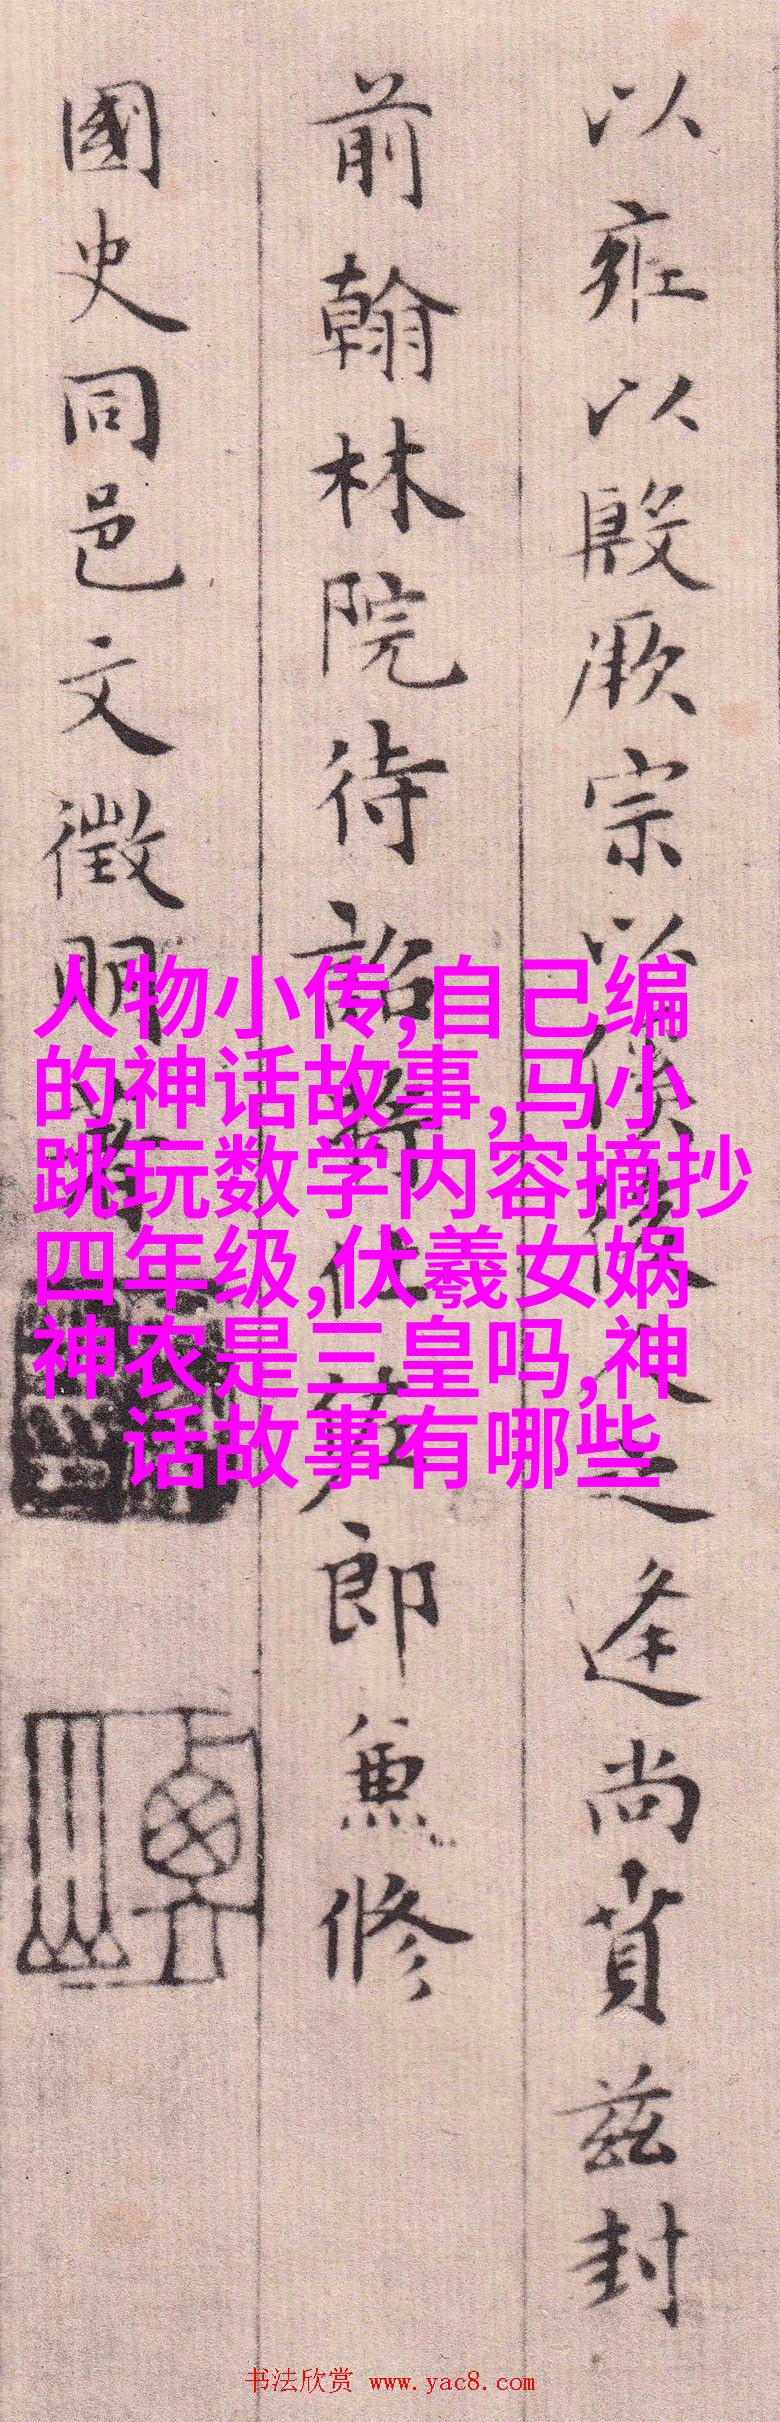 以雍以殷厥宗以俟後人之逢尚賁兹封
前翰林院待詔將仕佐郎兼修
國史同邑文徵明書
人物小传,自己编
的神话故事,马小
跳玩数学内容摘抄
四年级,伏羲女娲
神农是三皇吗,神
话故事有哪些
书法欣赏 www.yac8.com